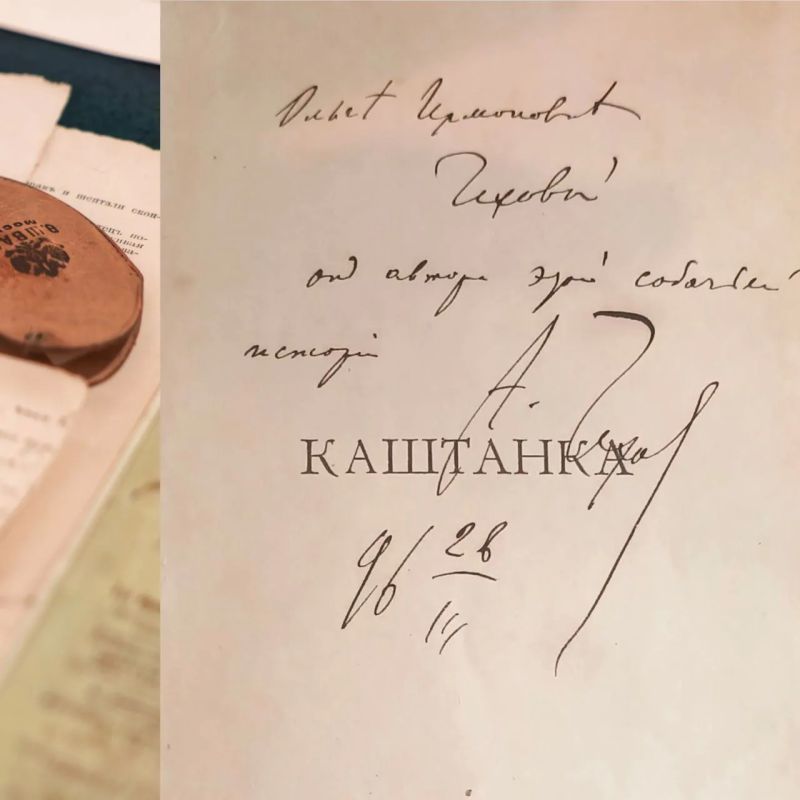 и шептали
Ольгѣ Германовнѣ
Чеховой
от автора этой собачьей
исторіи
А. Чехов
КАШТАНКА
96 28